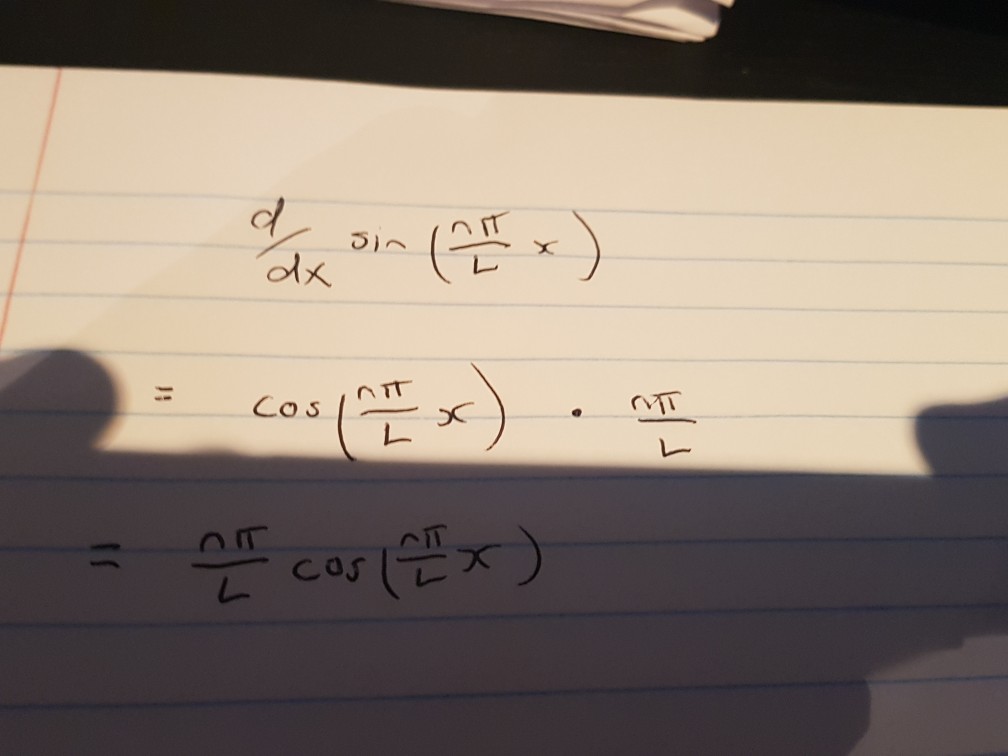 d/dx sin (nπ/L x)
= cos (nπ/L x) · nπ/L
= nπ/L cos (nπ/L x)